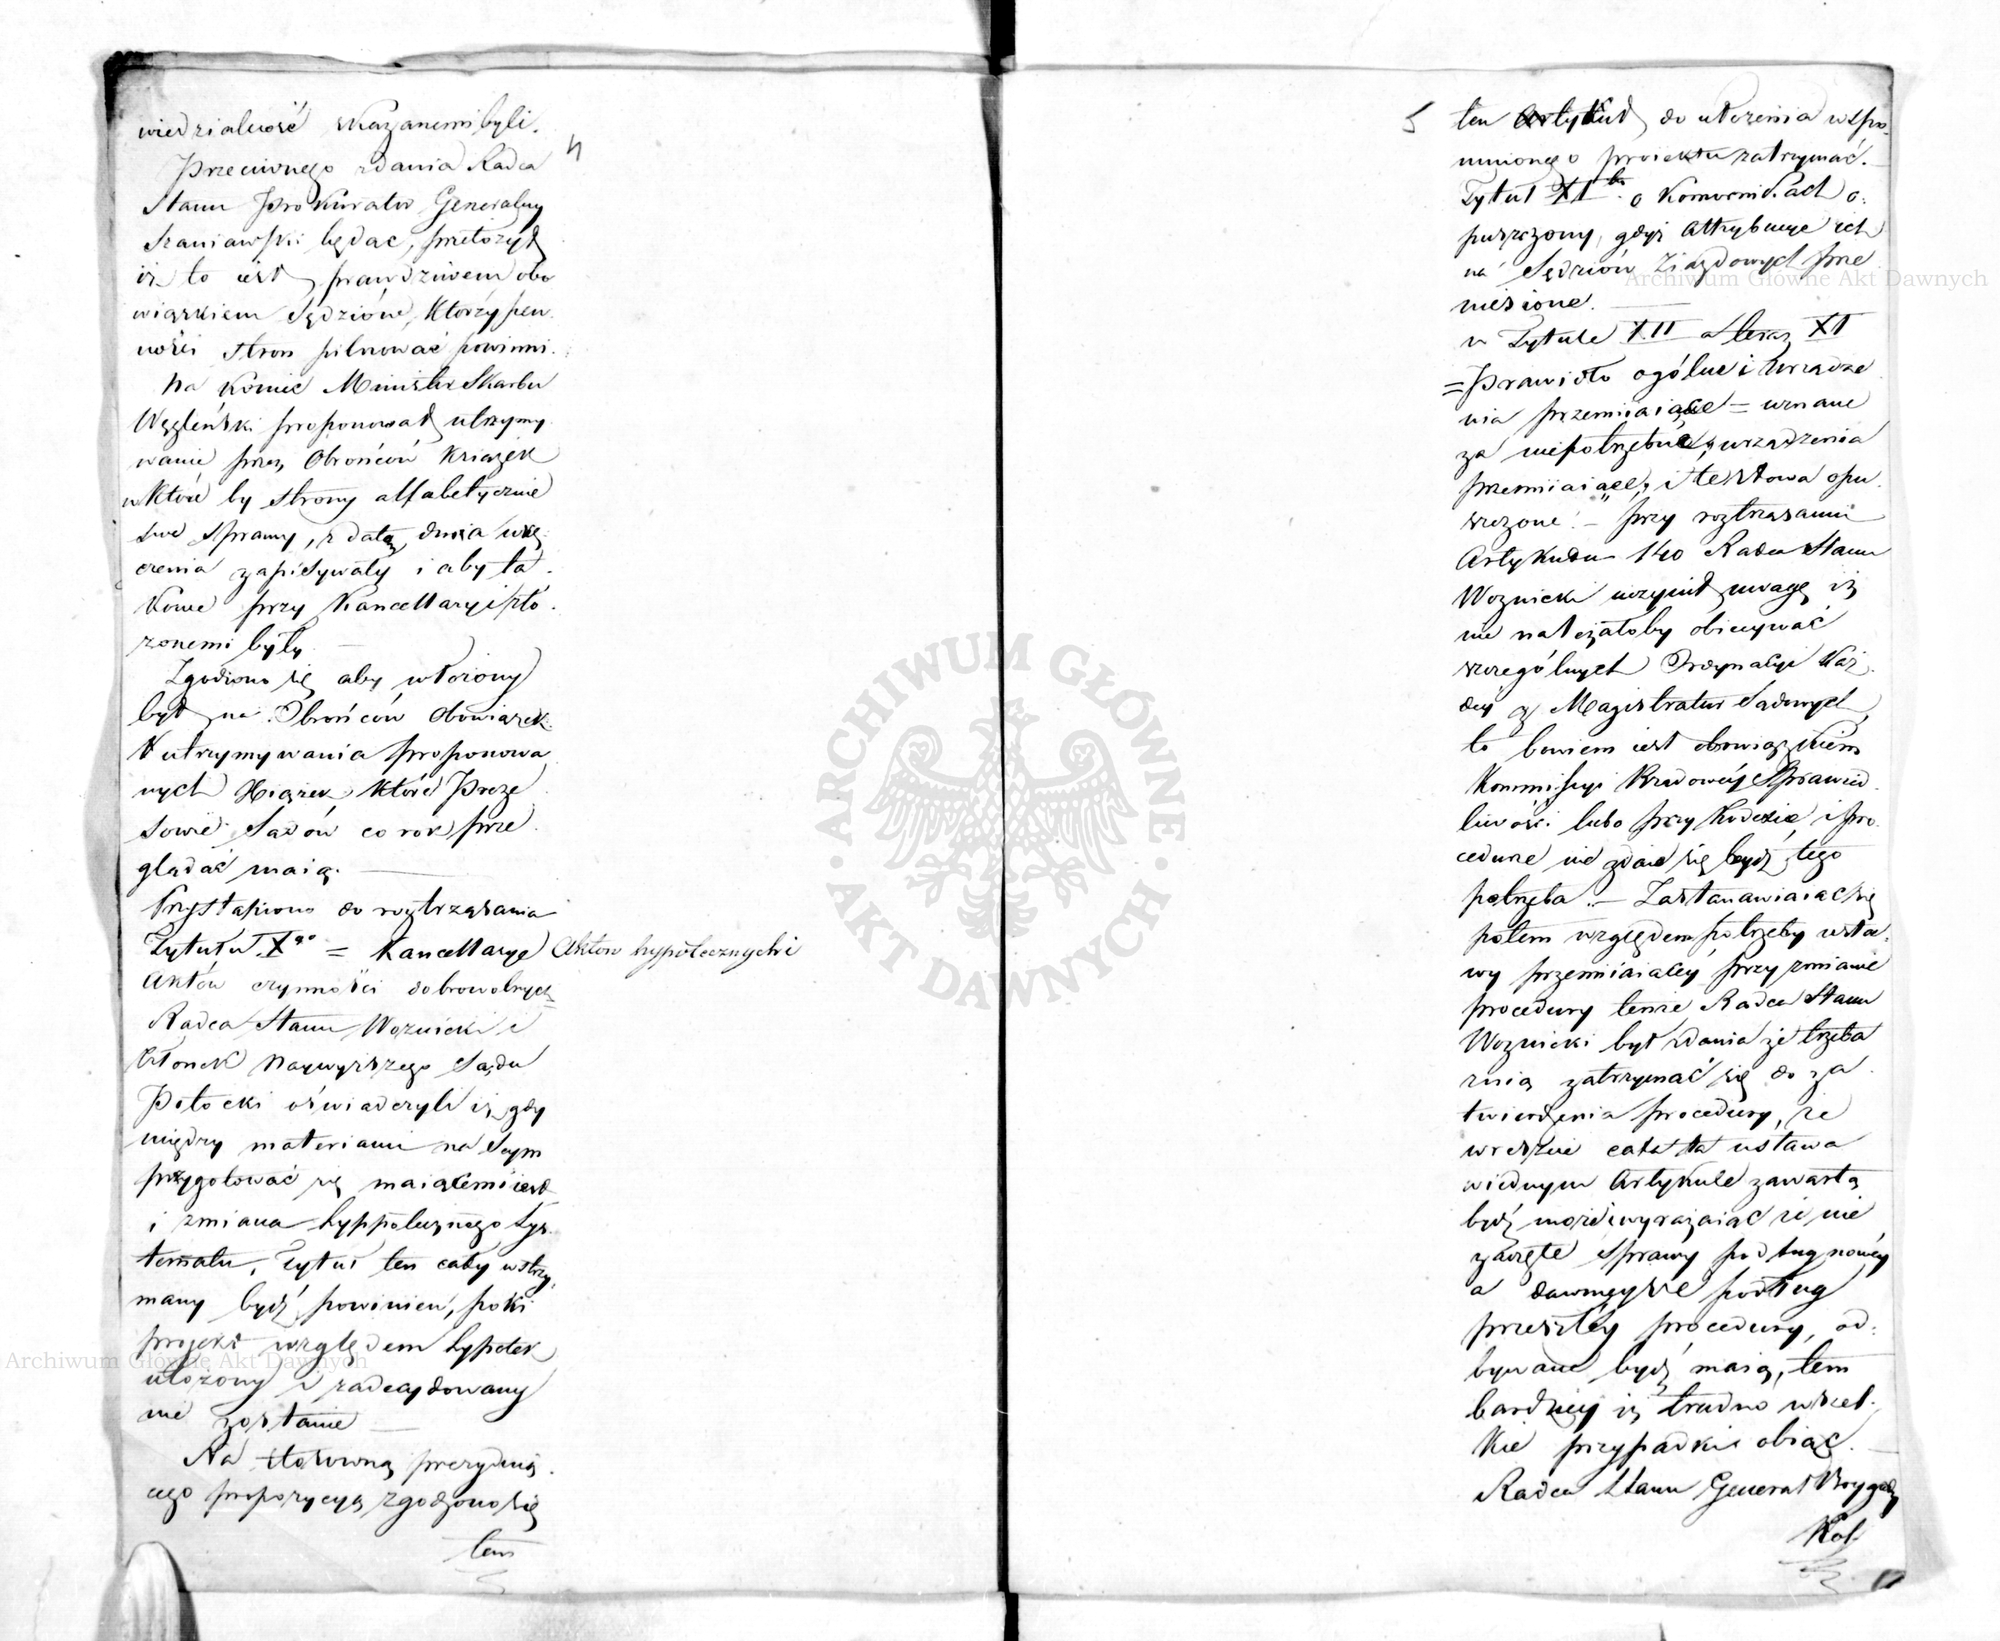 wiedzialność wskazanemi byli.
4
Przeciwnego zdania Radca
Stanu Prokurator Generalny
Szaniawski będąc, przełożył
iż to iest prawdziwem obo
wiązkiem Sędziów, którzy pew
ności stron pilnować powinni.
Na koniec Minister Skarbu
Węgleński proponował utrzymy
wanie przez Obrońców Książek
w które by strony alfabetycznie
swe sprawy, z datą dnia wrę
czenia zapisywały i aby ta
kowe przy Kancellaryi zło
zonemi były
Zgodzono się aby włożony
był na Obrońców obowiązek
utrzymywania proponowa
nych Xiążek które Preze
sowie Sądów co rok prze
glądać maią.
Przystąpiono do roztrząsania
Tytułu Xgo = Kancellarye Aktow hypotecznych i
Aktów czynności dobrowolnych=
Radca Stanu Woznicki i
Członek Naywyższego Sądu
Potocki oświadczyli iż gdy
między materiami na Seym
przygotować się maiącemi iest
i zmiana hyppotecznego Sys
tematu, Tytuł ten cały wstrzy
many bydź powinien, poki
projekt względem hypotek
ułożony i zadecydowany
nie zostanie
Na słowną prezyduią
cego propozycyą zgodzono się
ten
5
ten Artykuł do ułożenia wspo
mnionego proiektu zatrzymać.
Tytuł XIty o Komornikach o
puszczony, gdyż attrybucye ich
na Sędziów Ziazdowych prze
niesione.
w Tytule XII a teraz XI
=Prawidło ogólne i urządze
nia przemiiaiące = uznane
za niepotrzebne, urządzenia
przemiiaiące, i te słowa opu
szczone. – przy roztrząsaniu
Artykułu 140 Radca Stanu
Woznicki uczynił uwagę iż
nie należałoby obiecywać
szczególnych Ordynacyi Każ
dey z Magistratur Sądowych
to bowiem iest obowiązkiem
Kommissyi Rządowey Sprawied
liwości lubo przy Kodexie i pro
cedurze nie zdaie się bydź tego
potrzeba. – Zastanawiaiąc się
potem względem potrzeby usta
wy przemiiaiącey przy zmianie
procedury tenże Radca Stanu
Woznicki był zdania że trzeba
z nią zatrzymać się do za
twierdzenia procedury, że
wreszcie cała ta ustawa
w iednym Artykule zawartą
bydź może wyrażaiąc że nie
zaczęte sprawy podług nowéy
a dawnieysze podług
przeszłéy procedury, od
bywane bydź maią, tem
bardziey iż trudno wszel
kie przypadki obiąć.
Radca Stanu Generał Brygady
Kos